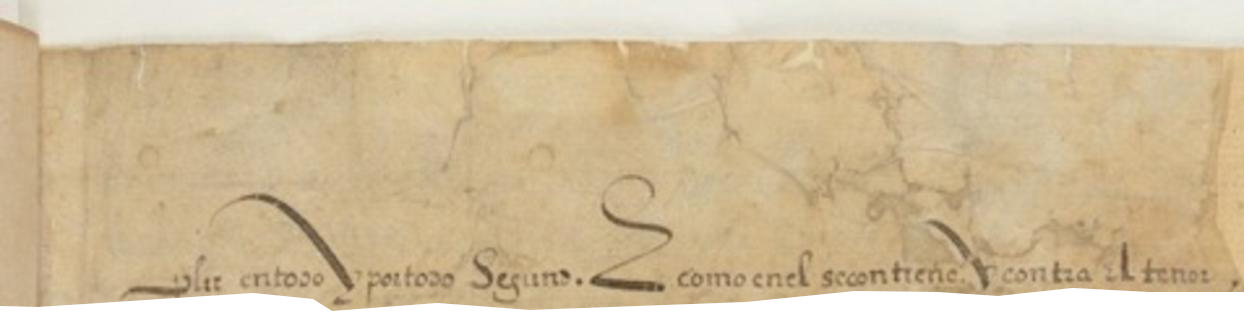 plir entodo y portodo Segund. E como enel secontiene. y contra el tenor